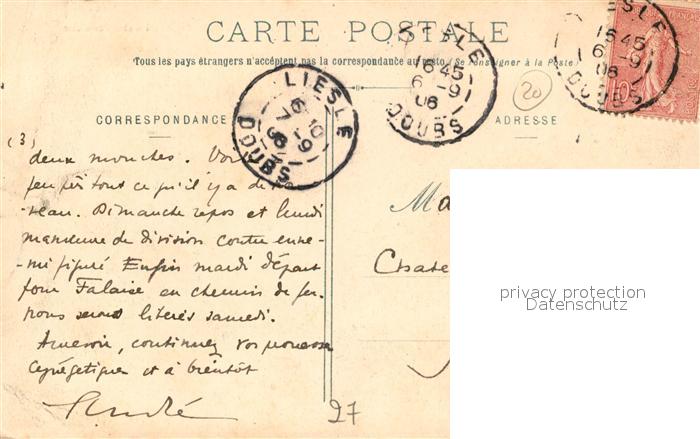 CARTE POSTALE
Tous les pays étrangers n'acceptent pas la correspondance au recto (Se renseigner à la Poste)
LIESLE
16 45
6 -9
06
DOUBS
LIESLE
16 45
6 -9
06
DOUBS
10c
20
LIESLE
6 10
7 -9
06
DOUBS
CORRESPONDANCE
ADRESSE
(3)
deux mouches. Voilà
peu près tout ce qu'il y a de nou-
-veau. Dimanche repos et lundi
manœuvre de division contre enne-
-mi figuré Enfin mardi départ
pour Falaise en chemin de fer.
nous serons libérés samedi.
Au revoir, continuez vos prouesses
cynégétiques et à bientôt
André
Ma
Chate
27
privacy protection
Datenschutz